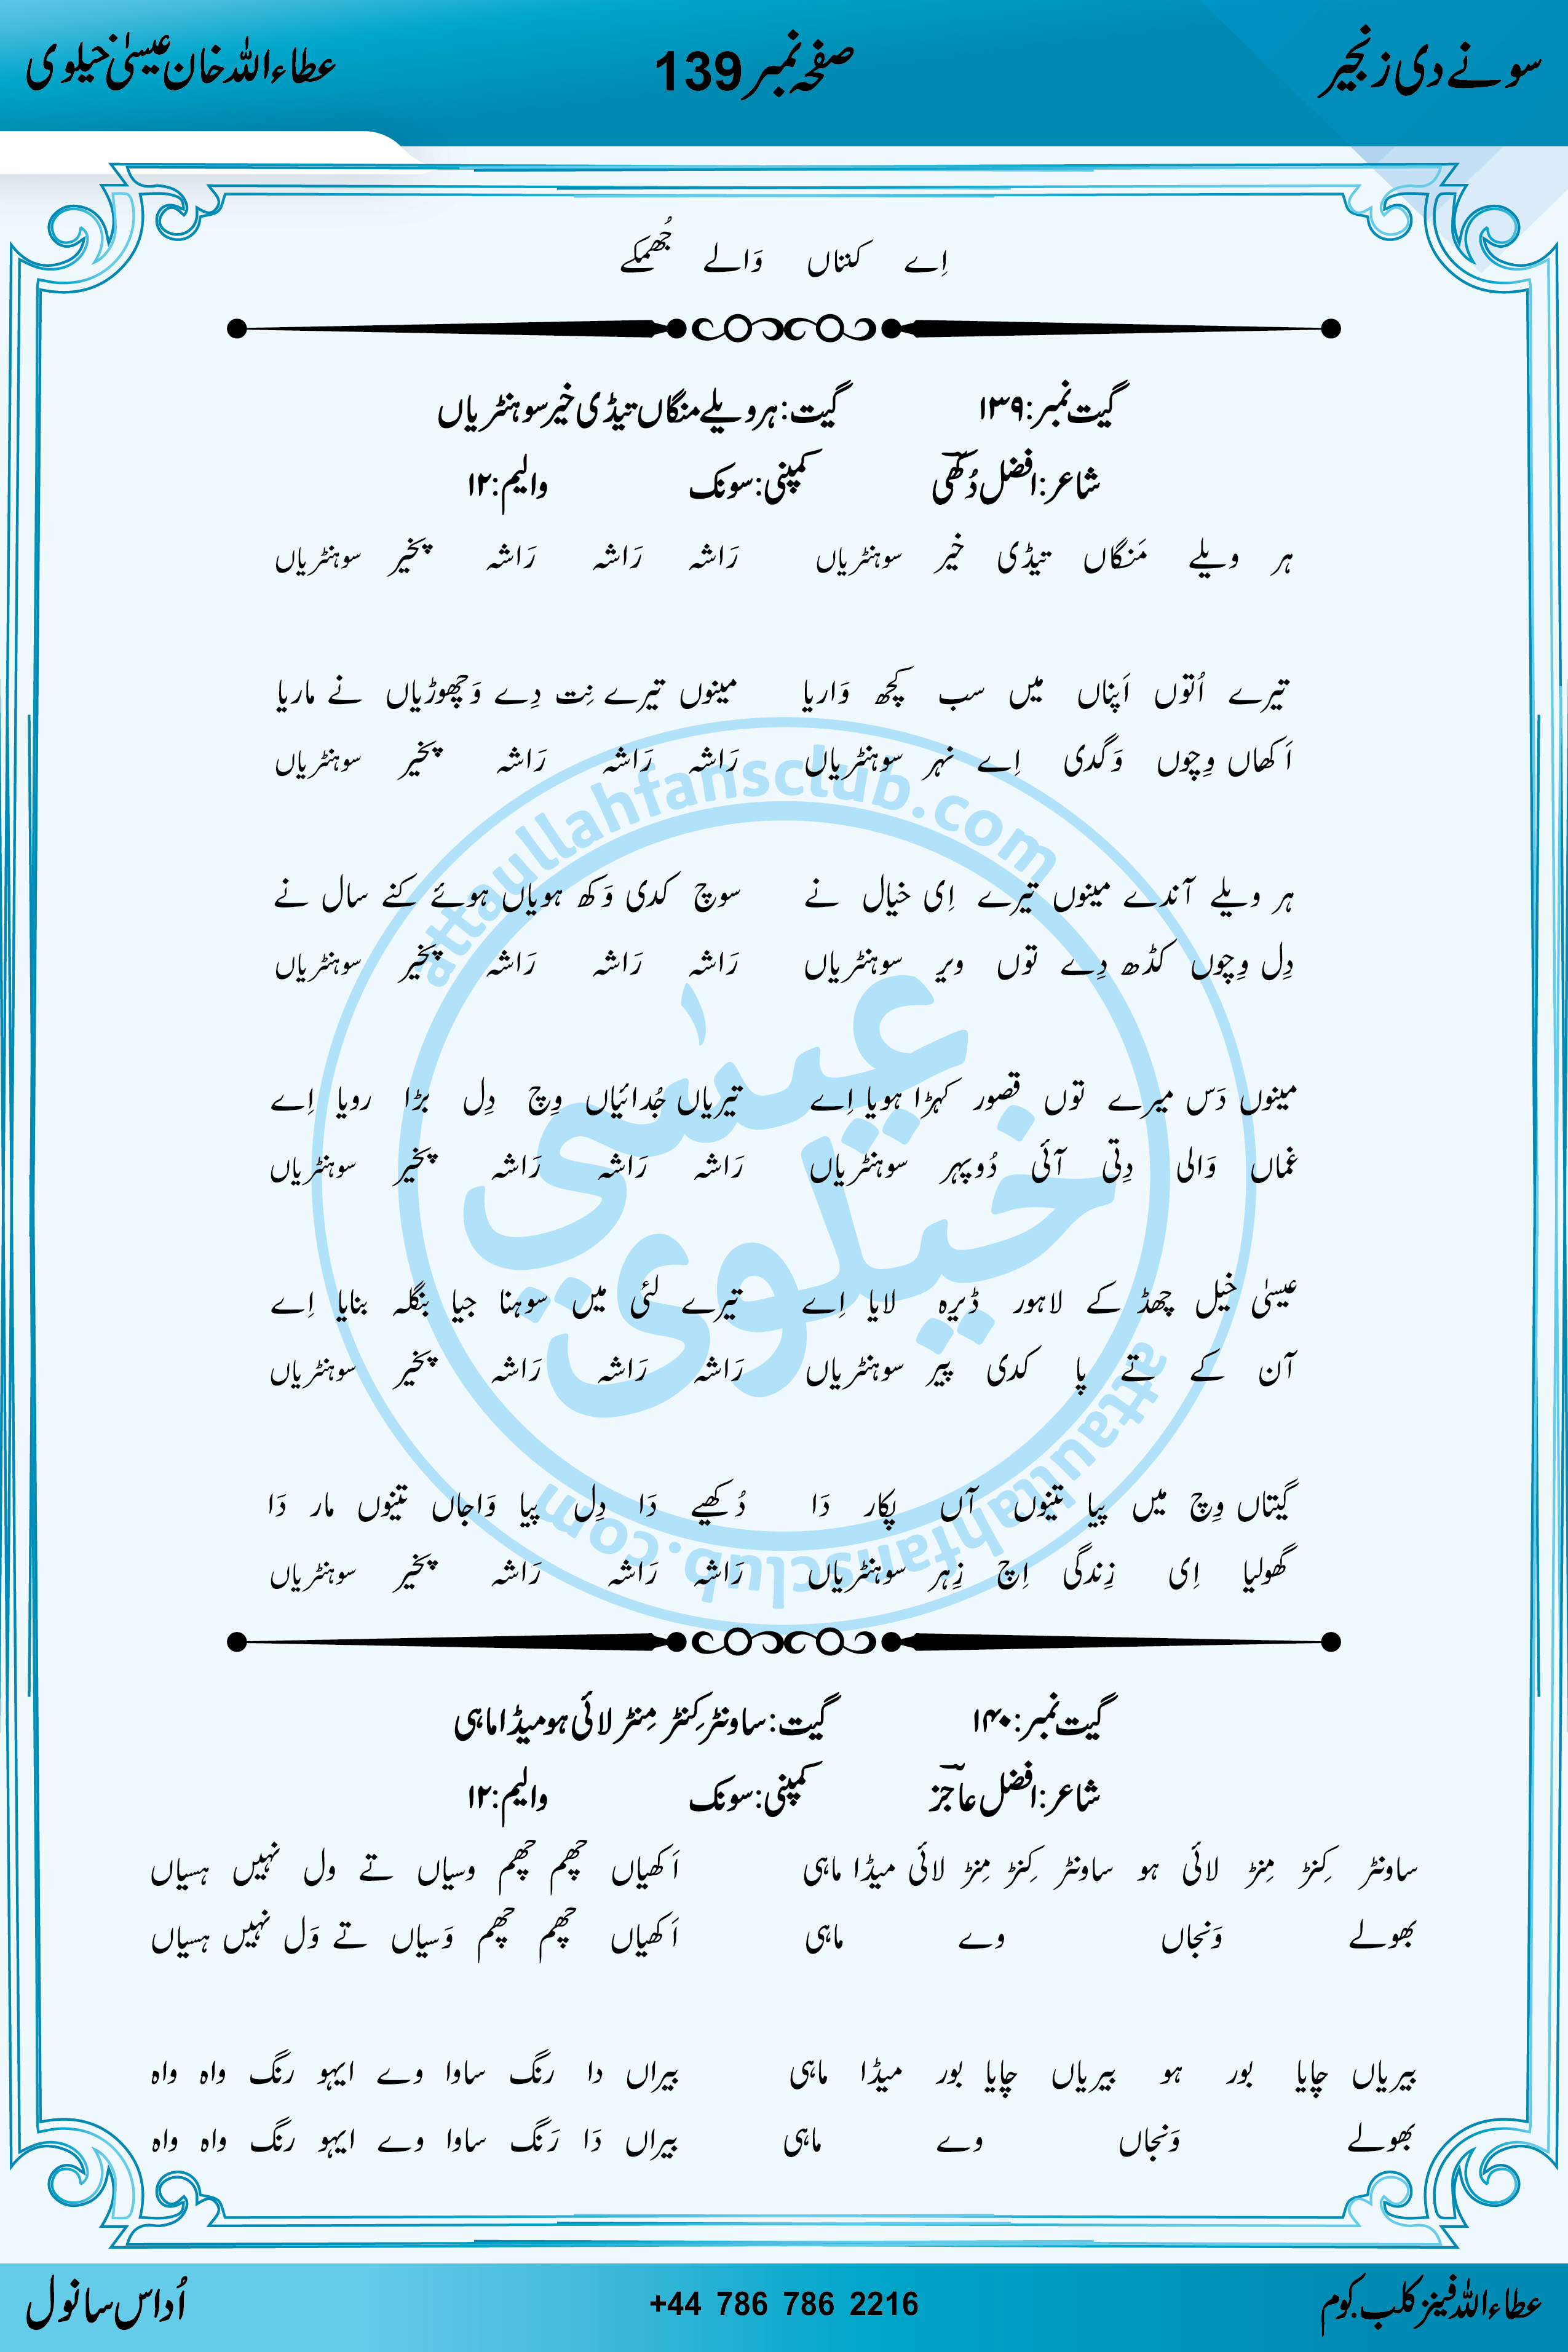 سونے دی زنجیر صفحہ نمبر 139 عطاءاللہ خان عیسیٰ خیلوی
اِے کنناں وَالے جُھمکے
گیت نمبر: ۱۳۹ گیت: ہر ویلے منگاں تیڈی خیر سوہنڑیاں
شاعر: افضل دُکھی کمپنی: سونک والیم: ۱۲
ہر ویلے مَنگاں تیڈی خیر سوہنڑیاں رَاشہ رَاشہ رَاشہ پخیر سوہنڑیاں
تیرے اُتوں اَپناں میں سب کچھ وَاریا مینوں تیرے نِت دِے وَچھوڑیاں نے ماریا
اَکھاں وِچوں وَگدی اِے نہر سوہنڑیاں رَاشہ رَاشہ رَاشہ پخیر سوہنڑیاں
ہر ویلے آندے مینوں تیرے اِی خیال نے سوچ کدی وَکھ ہویاں ہوئے کنے سال نے
دِل وِچوں کڈھ دِے توں ویر سوہنڑیاں رَاشہ رَاشہ رَاشہ پخیر سوہنڑیاں
مینوں دَس میرے توں قصور کہڑا ہویا اِے تیریاں جُدائیاں وِچ دِل بڑا رویا اِے
غماں وَالی دِتی آئی دُوپہر سوہنڑیاں رَاشہ رَاشہ رَاشہ پخیر سوہنڑیاں
عیسیٰ خیل چھڈ کے لاہور ڈیرہ لایا اِے تیرے لئی میں سوہنا جیا بنگلہ بنایا اِے
آن کے تے پا کدی پیر سوہنڑیاں رَاشہ رَاشہ رَاشہ پخیر سوہنڑیاں
گیتاں وِچ میں پیا تینوں آں پکار دَا دُکھیے دَا دِل پیا وَاجاں تینوں مار دَا
گھولیا اِی زِندگی اِچ زِہر سوہنڑیاں رَاشہ رَاشہ رَاشہ پخیر سوہنڑیاں
گیت نمبر: ۱۴۰ گیت: ساونڑ کِنڑ مِنڑ لائی ہو میڈا ماہی
شاعر: افضل عاجز کمپنی: سونک والیم: ۱۲
ساونڑ کِنڑ مِنڑ لائی ہو ساونڑ کِنڑ مِنڑ لائی میڈا ماہی اَکھیاں چھم چھم وسیاں تے ول نہیں ہسیاں
بھولے وَنجاں وے ماہی اَکھیاں چھم چھم وَسیاں تے وَل نہیں ہسیاں
بیریاں چایا بور ہو بیریاں چایا بور میڈا ماہی بیراں دا رنگ ساوا وے ایہو رنگ واہ واہ
بھولے وَنجاں وے ماہی بیراں دَا رَنگ ساوا وے ایہو رنگ واہ واہ
attaullahfansclub.com
عیسیٰ
خیلوی
attaullahfansclub.com
عطاءاللہ فینز کلب.کوم +44 786 786 2216 اُداس سانول